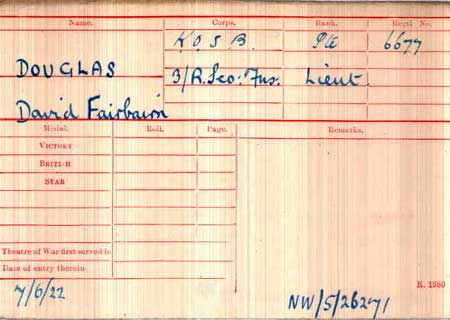 Name. Corps. Rank. Regtl No.
K.O.S.B. Pte 6677
DOUGLAS 3/R.Sco:Fus. Lieut.
David Fairbairn
Medal. Roll. Page. Remarks.
VICTORY
BRITISH
STAR
Theatre of War first served in
Date of entry therein
K. 1380
7/6/22 NW/5/26271